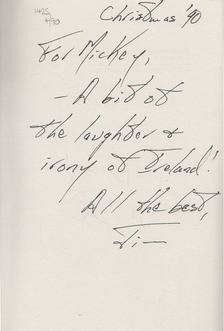 Christmas '90
For Mickey,
– A bit of
the laughter &
irony of Ireland!
All the best,